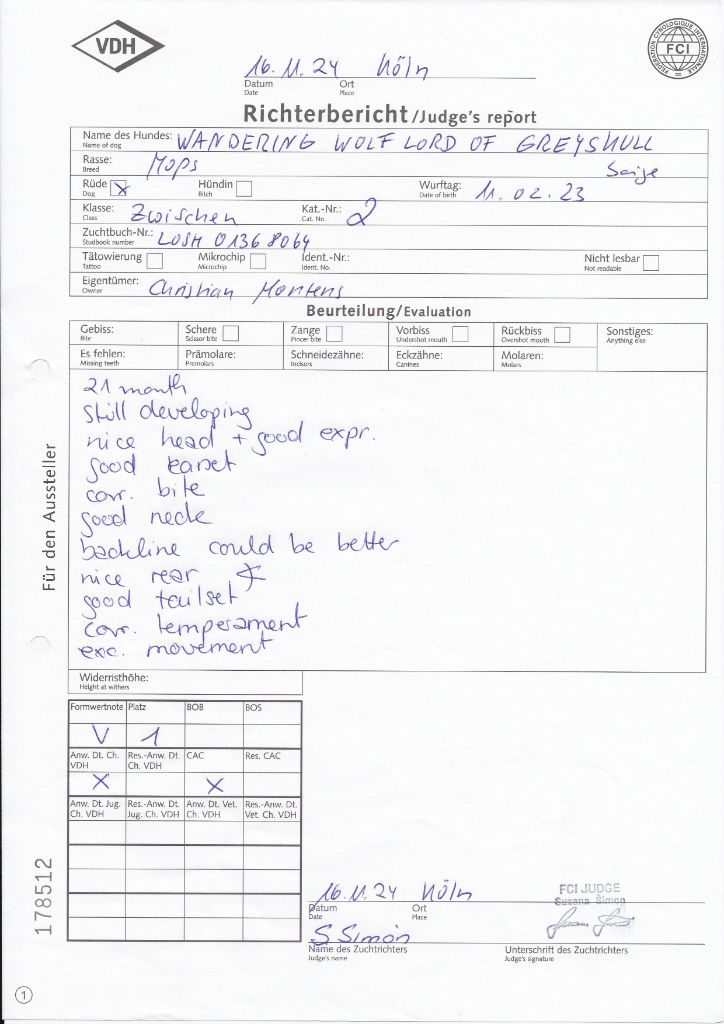 VDH
FEDERATION CYNOLOGIQUE INTERNATIONALE
FCI
16.11.24 Köln
Datum Ort
Date Place
Richterbericht/Judge's report
Name des Hundes: WANDERING WOLF LORD OF GREYSKULL
Name of dog
Rasse: Mops beige
Breed
Rüde X Hündin Wurftag: 11.02.23
Dog Bitch Date of birth
Klasse: Zwischen Kat.-Nr.: 2
Class Cat. No.
Zuchtbuch-Nr.: LOSH 01368064
Studbook number
Tätowierung Mikrochip Ident.-Nr.: Nicht lesbar
Tattoo Microchip Ident. No. Not readable
Eigentümer: Christian Mertens
Owner
Beurteilung/Evaluation
Gebiss: Schere Zange Vorbiss Rückbiss Sonstiges:
Bite Scissor bite Pincer bite Undershot mouth Overshot mouth Anything else
Es fehlen: Prämolare: Schneidezähne: Eckzähne: Molaren:
Missing teeth Premolars Incisors Canines Molars
21 month
still developing
nice head + good expr.
good earset
corr. bite
good neck
backline could be better
nice rear
good tailset
corr. temperament
exc. movement
Für den Aussteller
Widerristhöhe:
Height at withers
Formwertnote Platz BOB BOS
V 1
Anw. Dt. Ch. VDH Res.-Anw. Dt. Ch. VDH CAC Res. CAC
X X
Anw. Dt. Jug. Ch. VDH Res.-Anw. Dt. Jug. Ch. VDH Anw. Dt. Vet. Ch. VDH Res.-Anw. Dt. Vet. Ch. VDH
178512
16.11.24 Köln
Datum Ort
Date Place
FCI JUDGE
Suzana Simon
S Simon
Name des Zuchtrichters Unterschrift des Zuchtrichters
Judge's name Judge's signature
1